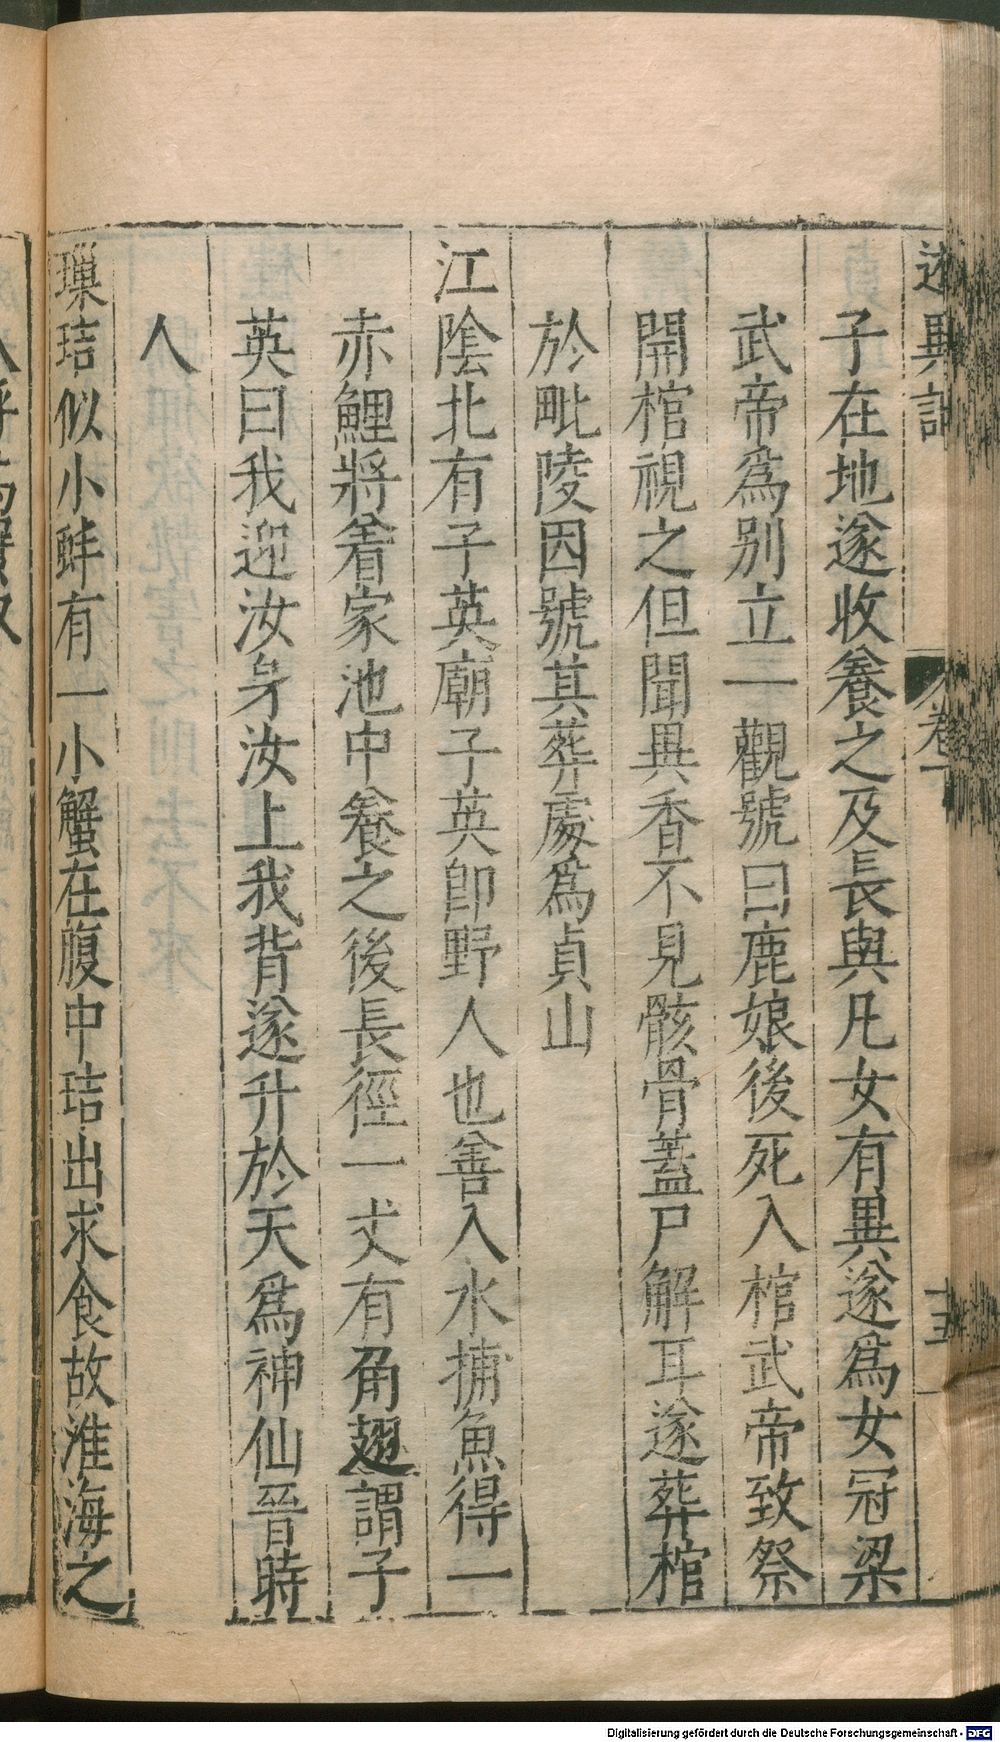 述異記
卷下
十五
子在地遂收養之及長與凡女有異遂爲女冠梁
武帝爲別立一觀號曰鹿娘後死入棺武帝致祭
開棺視之但聞異香不見骸骨蓋尸解耳遂葬棺
於毗陵因號其葬處爲貞山
江陰北有子英廟子英卽野人也善入水捕魚得一
赤鯉將着家池中養之後長徑一丈有角翅謂子
英曰我迎汝身汝上我背遂升於天爲神仙晉時
人
璅蛣似小蚌有一小蟹在腹中蛣出求食故淮海之
Digitalisierung gefördert durch die Deutsche Forschungsgemeinschaft - DFG